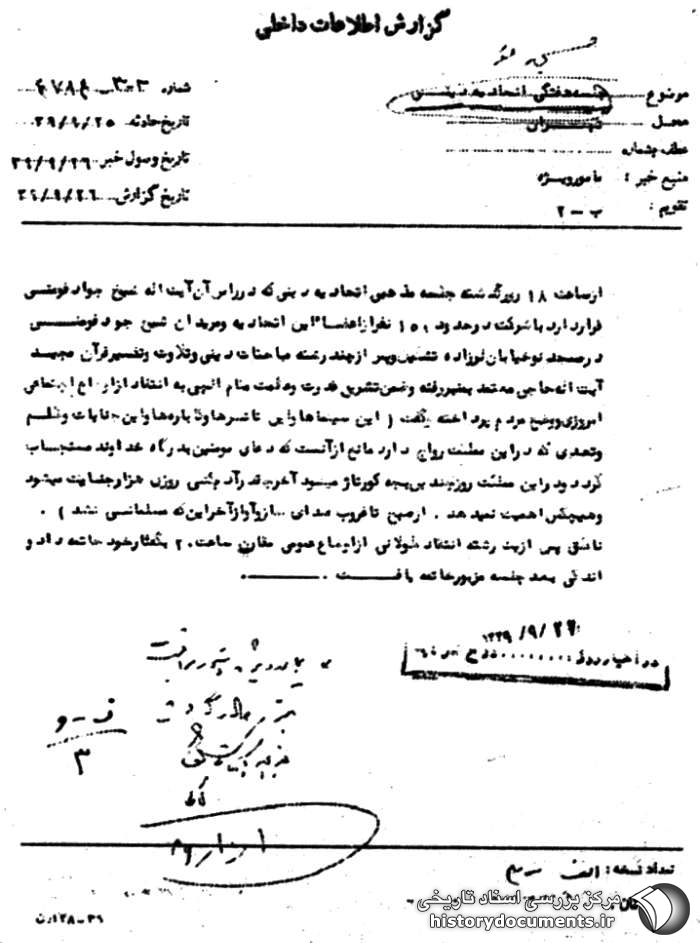 گزارش اطلاعات داخلی
موضوع جلسه هفتگی اتحادیه دینی
شماره ۳۰۳
محل تهران
تاریخ حادثه ۳۹/۹/۲۵
عطف بشماره
تاریخ وصول خبر ۳۹/۹/۲۶
منبع خبر : مامور ویژه
تاریخ گزارش ۳۹/۹/۲۶
تقویم : ب - ۲
از ساعت ۱۸ روز گذشته جلسه مذهبی اتحادیه دینی که در راس آن آیت اله شیخ جواد فومنی
قرار دارد با شرکت در حدود ۱۵۰ نفر از اعضا این اتحادیه و مریدان شیخ جواد فومنی
در مسجد نو خیابان لرزاده تشکیل و پس از چند رشته مباحثات دینی و تلاوت و تفسیر قرآن مجید
آیت اله حاجی معتمد بمنبر رفته و ضمن تشریح قدرت و عظمت مقام الهی به انتقاد از اوضاع اجتماعی
امروزی و وضع مردم پرداخته گفت ( این سینماها و این تاترها و کاباره‌ها و این جنایات و ظلم
و تعدی که در این مملکت رواج دارد مانع از آنست که دعای مومنین بدرگاه خداوند مستجاب
گردد و در این مملکت روز چند بچه کورتاژ میشود آخر چقدر آدم‌کشی روزی هزار جنایت میشود
و هیچکس اهمیت نمیدهد . از صبح تا غروب صدای ساز و آواز آخر این که مسلمانی نشد ) .
ناطق پس از یک رشته انتقاد طولانی از اوضاع عمومی مقارن ساعت ۲۰ بگفتار خود خاتمه داد و
اندکی بعد جلسه مزبور خاتمه یافت .
۱۳۳۹/۹/۲۶
در اخبار روز درج
ف - و
۳
تعداد نسخه : الف
۳۹-۱۲۸
مرکز بررسی اسناد تاریخی
historydocuments.ir